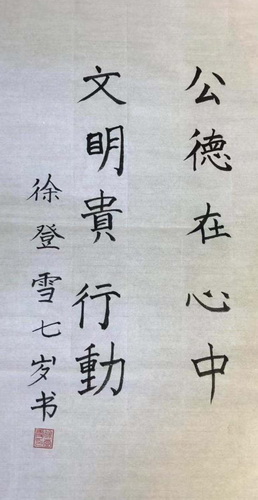 公德在心中
文明貴行動
徐登雪七岁书